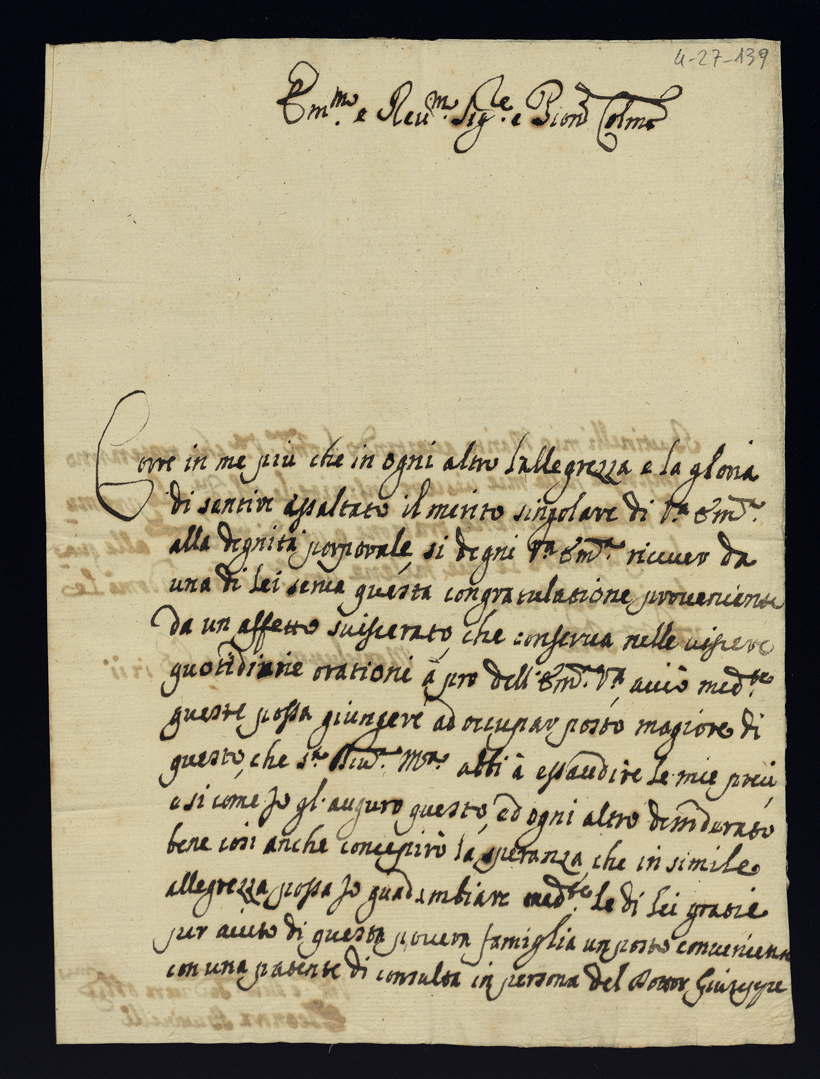 4-27-139
Em.mo e Reu.mo Sig.re e Pron Colmo
Corre in me più che in ogni altro l'allegrezza e la gloria
di sentire assaltato il merito singolare di V.ra Em.za
alla degnità porporale, si degni V.ra Em.za riceuer da
una di lei serua questa congratulatione proueniente
da un affetto suiscerato, che conserua nelle uiscere
quotidianie orationi à pro dell'Em.za V.ra acciò med.te
queste possa giungere ad occupar posto magiore di
questo, che S.a Diu.a M.tà abbi à essaudire le mie preci,
e si come Io gl'auguro questo, ed ogni altro
bene cosi anche concepirò la speranza, che in simile
allegrezza possa Io med.te le di lei gratie
per aiuto di questa pouera famiglia un posto conueniente
con una patente di consulta in persona del Dottor Giuseppe